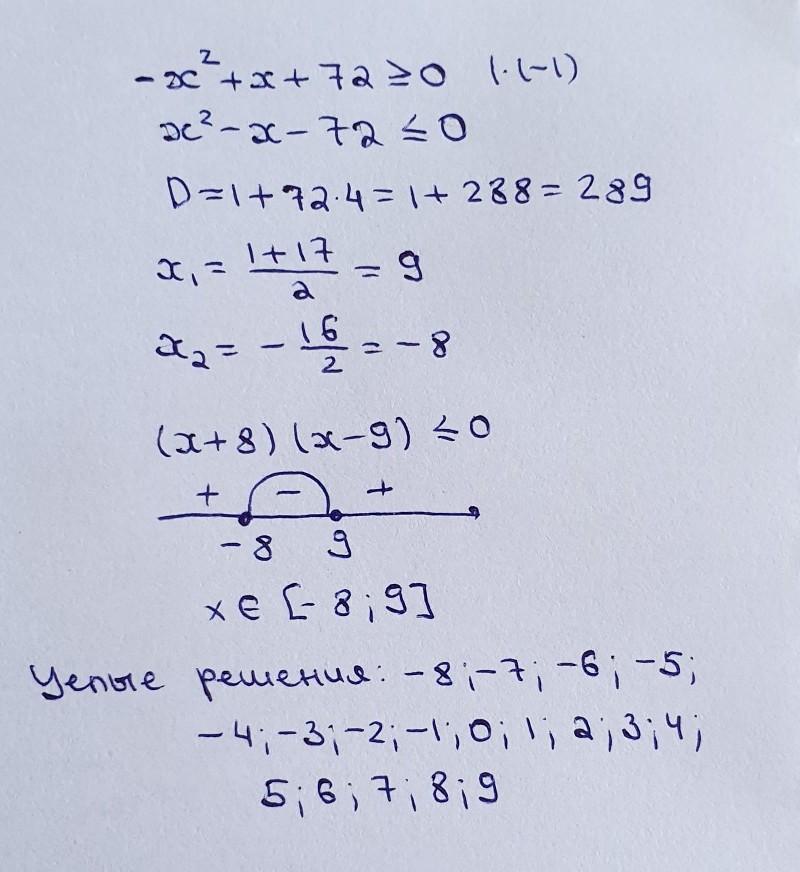 -x²+x+72≥0 |·(-1)
x²-x-72≤0
D=1+72·4=1+288=289
x₁=(1+17)/2=9
x₂=-16/2=-8
(x+8)(x-9)≤0
+ - +
-8 9
x∈[-8;9]
Целые решения: -8;-7;-6;-5;
-4;-3;-2;-1;0;1;2;3;4;
5;6;7;8;9